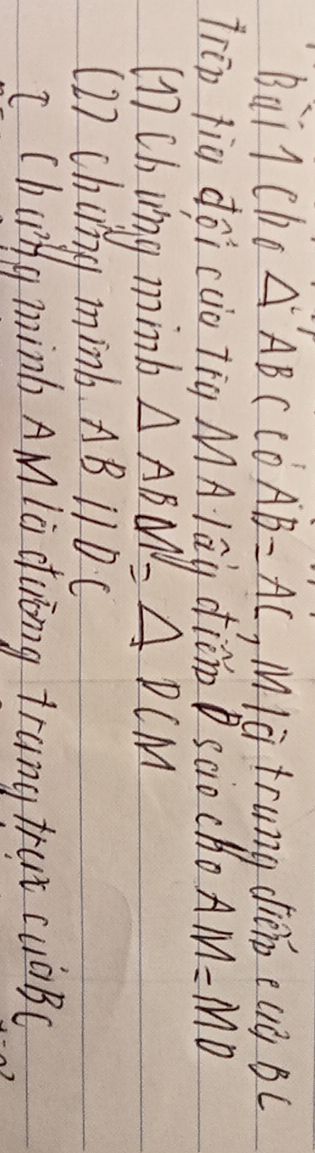 Bài 1 Cho Δ ABC có AB = AC, M là trung điểm của BC
Trên tia đối của tia MA lấy điểm D sao cho AM = MD
(1) Chứng minh Δ ABM = Δ DCM
(2) Chứng minh AB // DC
Chứng minh AM là đường trung trực của BC